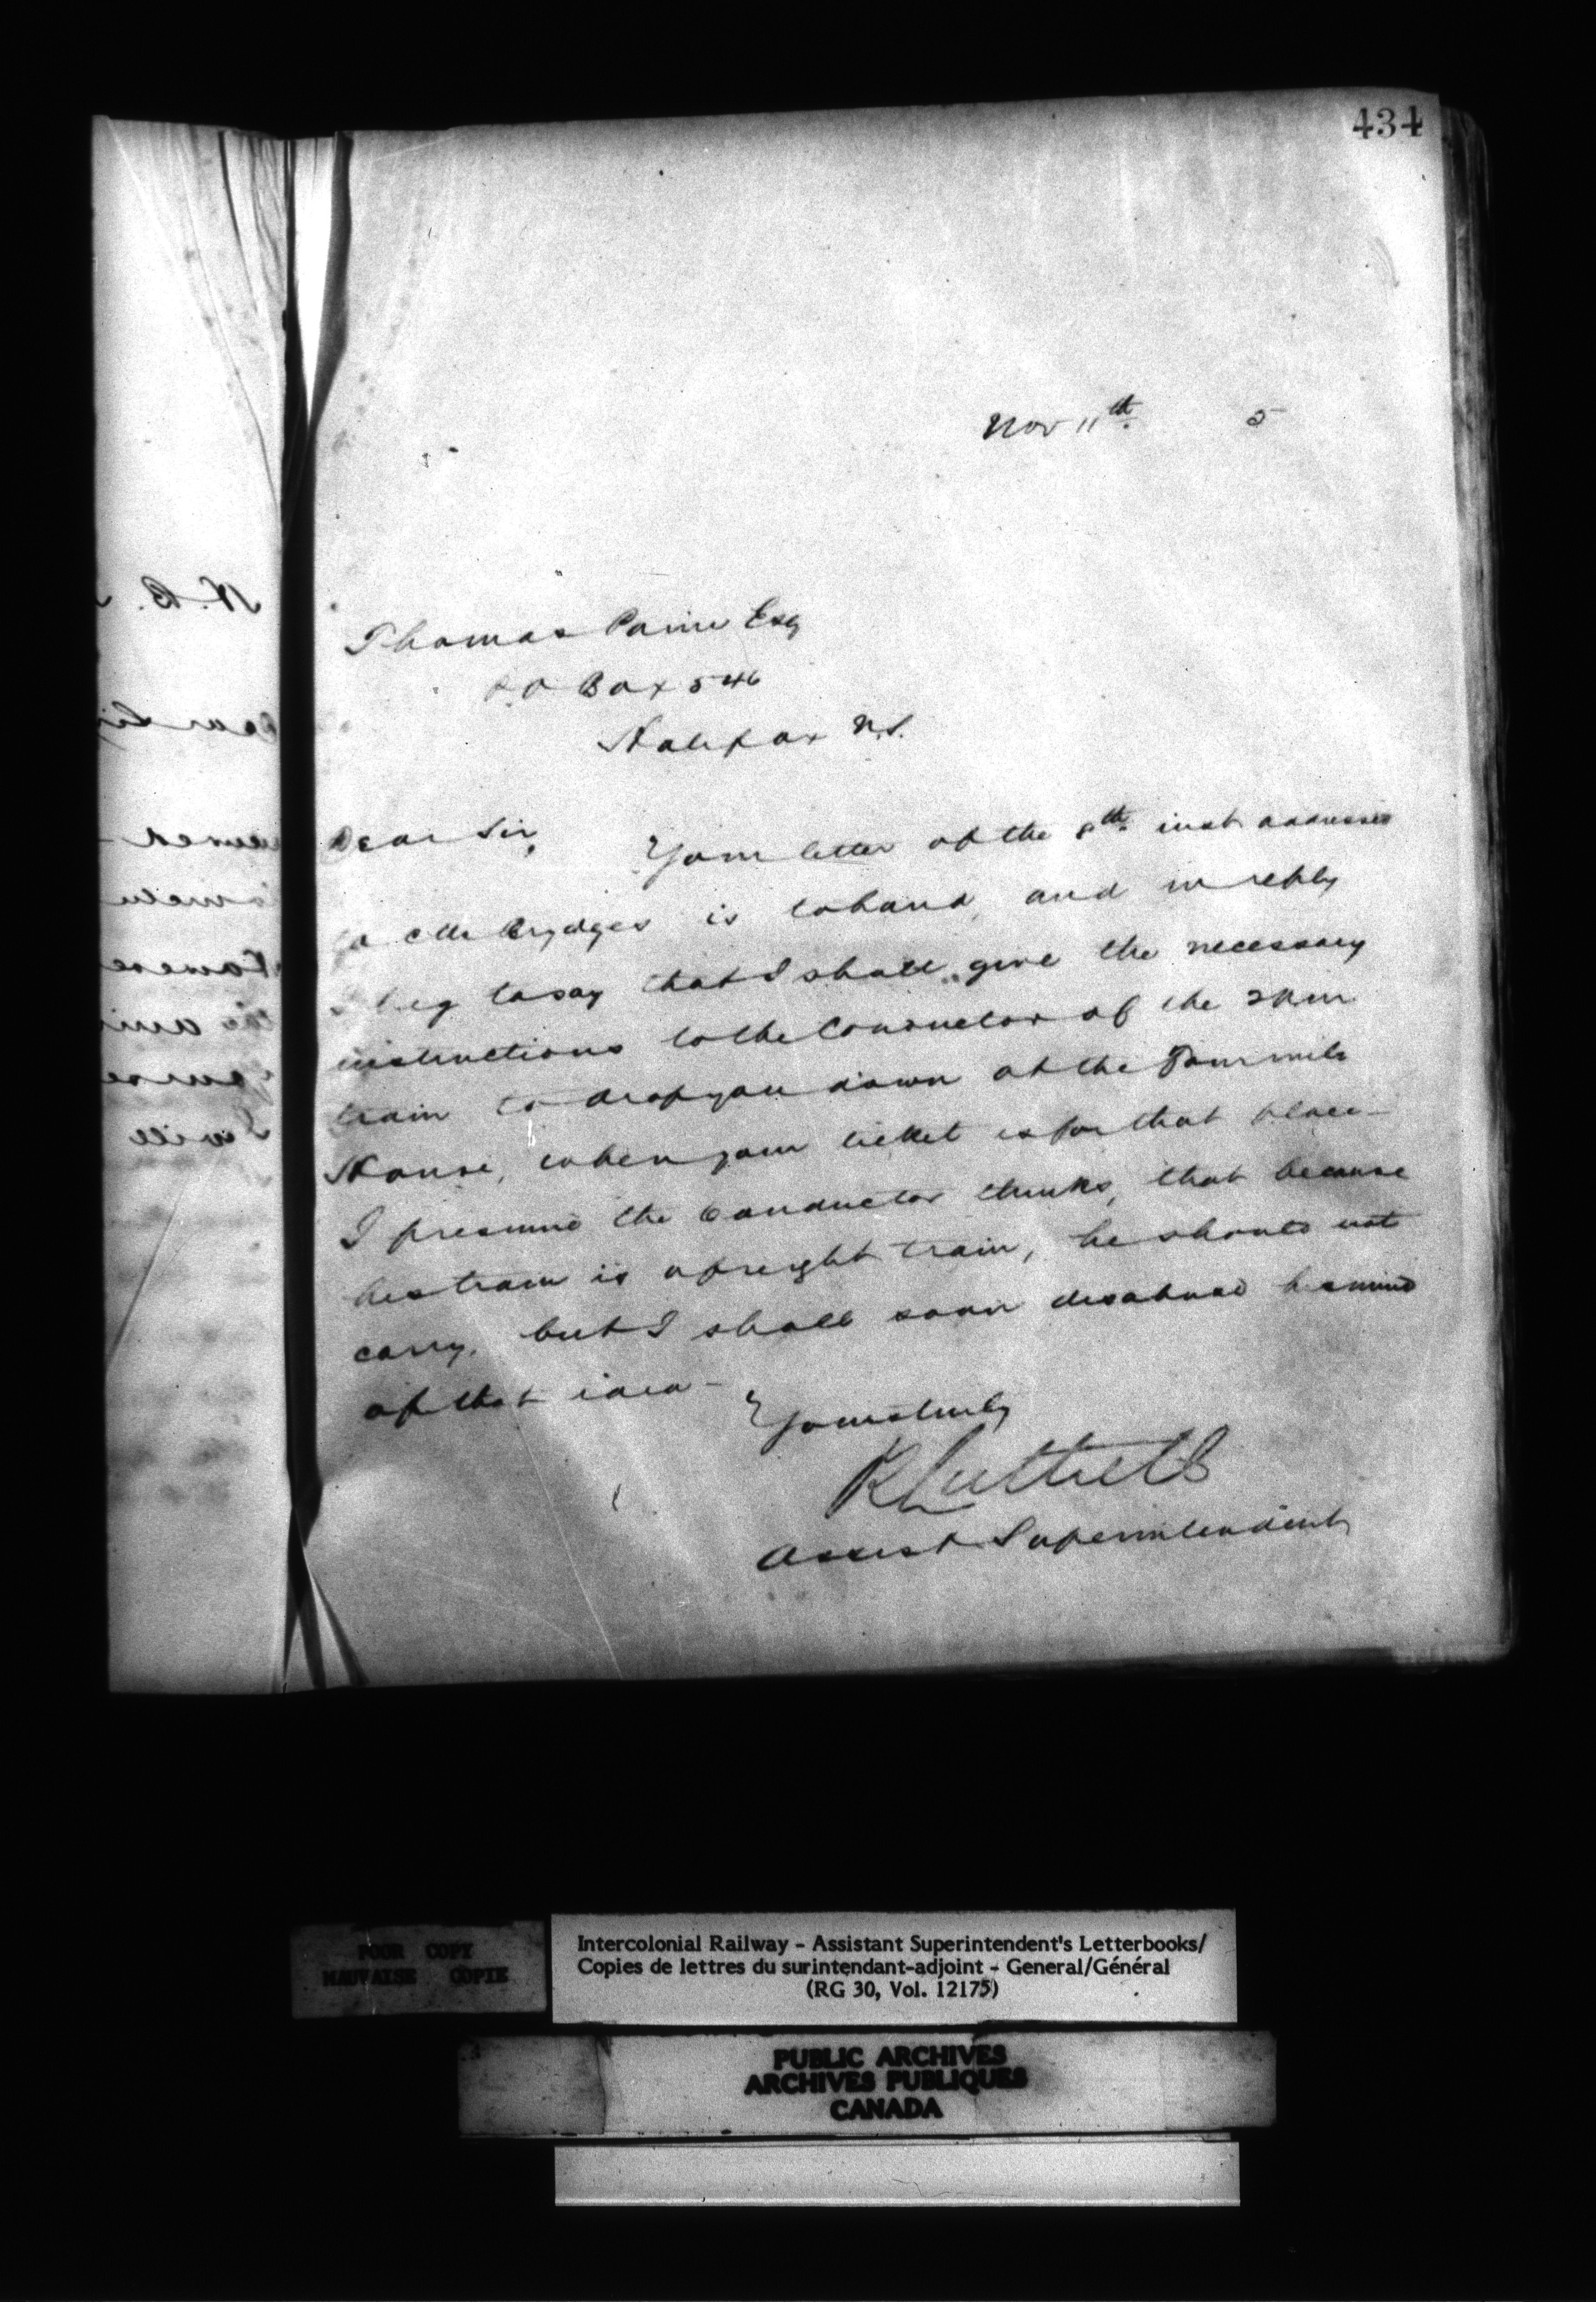 434
Nov 11th 5
Thomas Paine Esq
P.O Box 546
Halifax N.S.
Dear Sir,
Your letter of the 8th inst addressed
to Mr Brydges is to hand, and in reply
I beg to say that I shall give the necessary
instructions to the Conductor of the
train to drop you down at the Four mile
House, when your ticket is for that place -
I presume the Conductor thinks, that because
his train is a freight train, he should not
carry, but I shall soon disabuse his mind
of that idea -
Yours truly
R Luttrell
Assist Superintendent
POOR COPY
MAUVAISE COPIE
Intercolonial Railway - Assistant Superintendent's Letterbooks/
Copies de lettres du surintendant-adjoint - General/Général
(RG 30, Vol. 12175)
PUBLIC ARCHIVES
ARCHIVES PUBLIQUES
CANADA